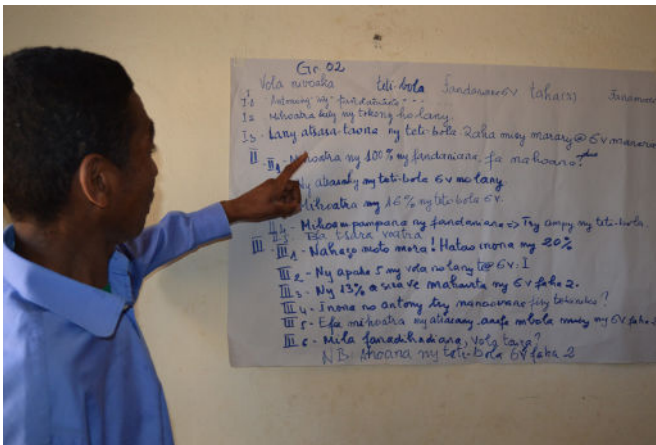 Gr 02
I Vola nivoaka teti-bola Fandaniana 6V taha (%)
I1 - Antomony ny fandaniana
I2 Mihoatra kely ny tokony ho lany.
I3 - Lany atsasa-taona ny teti-bola 2aha misy marary @ 6V
II - II1 - Mihoatra ny 100% ny fandaniana, fa nahoana?
Ny atsasaky ny teti-bola 6V no lany.
Mihoatra ny 16% ny teti-bola 6V.
II4 - Mihoampampana ny fandaniana => Tsy ampy ny teti-bola.
II5 - Ba tsara vatra
III - III1 - Nahazo moto mora! Hatao inona ny 20%
III2 - Ny apake 5 ny vola no lany t@ 6V: I
III3 - Ny 13% a sisa ve mahavita ny 6V faha 2.
III4 - Inona no antony tsy nanaovana
III5 - Efa mihoatra ny atsasany anefa mbola misy ny 6V faha 2
III6 - Mila fanadihadiana, vola taiza?
NB: Ahoana ny teti-bola 6V faha 2